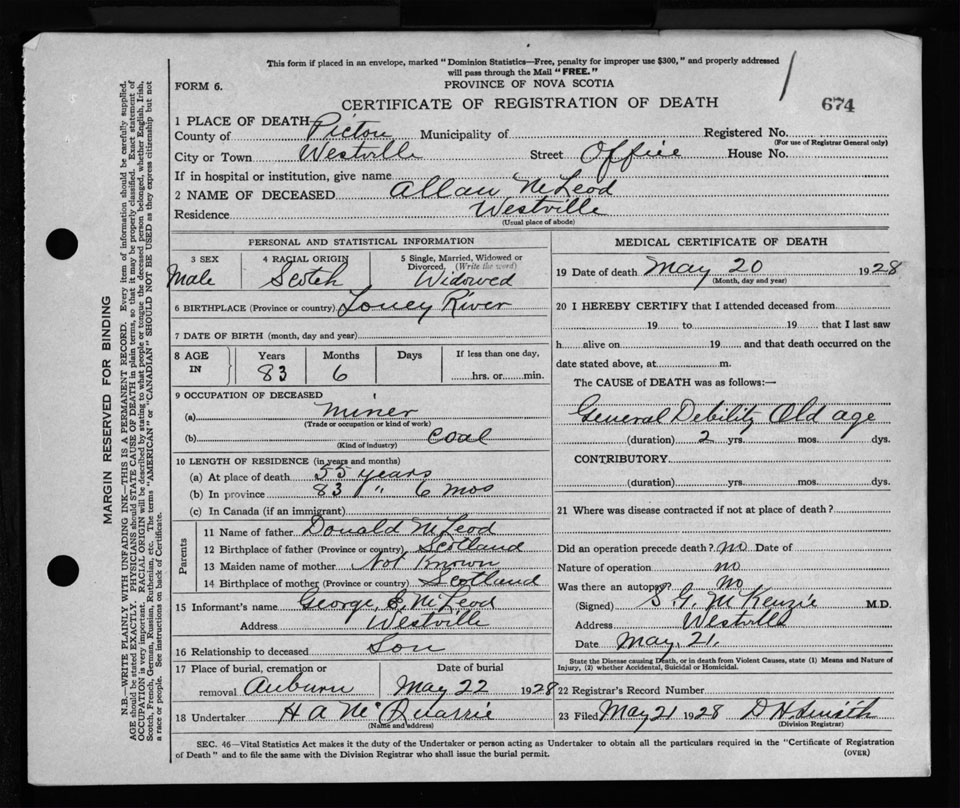 This form if placed in an envelope, marked "Dominion Statistics—Free, penalty for improper use $300," and properly addressed
will pass through the Mail "FREE."
FORM 6.
PROVINCE OF NOVA SCOTIA
CERTIFICATE OF REGISTRATION OF DEATH
674
1 PLACE OF DEATH
County of Pictou Municipality of Registered No.
(For use of Registrar General only)
City or Town Westville Street Office House No.
If in hospital or institution, give name
2 NAME OF DECEASED Allan McLeod
Residence Westville
(Usual place of abode)
PERSONAL AND STATISTICAL INFORMATION
3 SEX 4 RACIAL ORIGIN 5 Single, Married, Widowed or Divorced. (Write the word)
Male Scotch Widowed
6 BIRTHPLACE (Province or country) Toney River
7 DATE OF BIRTH (month, day and year)
8 AGE IN Years Months Days If less than one day,
83 6 hrs. or min.
9 OCCUPATION OF DECEASED
(a) Miner
(Trade or occupation or kind of work)
(b) Coal
(Kind of industry)
10 LENGTH OF RESIDENCE (in years and months)
(a) At place of death 55 years
(b) In province 83 " 6 mos
(c) In Canada (if an immigrant)
Parents
11 Name of father Donald McLeod
12 Birthplace of father (Province or country) Scotland
13 Maiden name of mother Not Known
14 Birthplace of mother (Province or country) Scotland
15 Informant's name George S. McLeod
Address Westville
16 Relationship to deceased Son
17 Place of burial, cremation or removal Auburn
Date of burial May 22 1928
18 Undertaker H A McQuarrie
(Name and address)
MEDICAL CERTIFICATE OF DEATH
19 Date of death May 20 1928
(Month, day and year)
20 I HEREBY CERTIFY that I attended deceased from
19 to 19 that I last saw
h alive on 19 and that death occurred on the
date stated above, at m.
The CAUSE of DEATH was as follows:—
General Debility Old age
(duration) 2 yrs. mos. dys.
CONTRIBUTORY.
(duration) yrs. mos. dys.
21 Where was disease contracted if not at place of death?
Did an operation precede death? no Date of
Nature of operation no
Was there an autopsy? No
(Signed) S. G. McKenzie M.D.
Address Westville
Date May, 21.
State the Disease causing Death, or in death from Violent Causes, state (1) Means and Nature of
Injury, (2) whether Accidental, Suicidal or Homicidal.
22 Registrar's Record Number
23 Filed May 21 1928 D H
(Division Registrar)
SEC. 46—Vital Statistics Act makes it the duty of the Undertaker or person acting as Undertaker to obtain all the particulars required in the "Certificate of Registration
of Death" and to file the same with the Division Registrar who shall issue the burial permit.
(OVER)
MARGIN RESERVED FOR BINDING
N.B.—WRITE PLAINLY WITH UNFADING INK—THIS IS A PERMANENT RECORD. Every item of information should be carefully supplied.
AGE should be stated EXACTLY. PHYSICIANS should STATE CAUSE OF DEATH in plain terms, so that it may be properly classified. Exact statement of
OCCUPATION is very important. RACIAL ORIGIN will be described by stating to what people or tongue the deceased person belonged, whether English, Irish,
Scotch, French, German, Russian, Ruthenian, etc. The terms "AMERICAN" or "CANADIAN" SHOULD NOT BE USED as they express citizenship but not
a race or people. See instructions on back of Certificate.